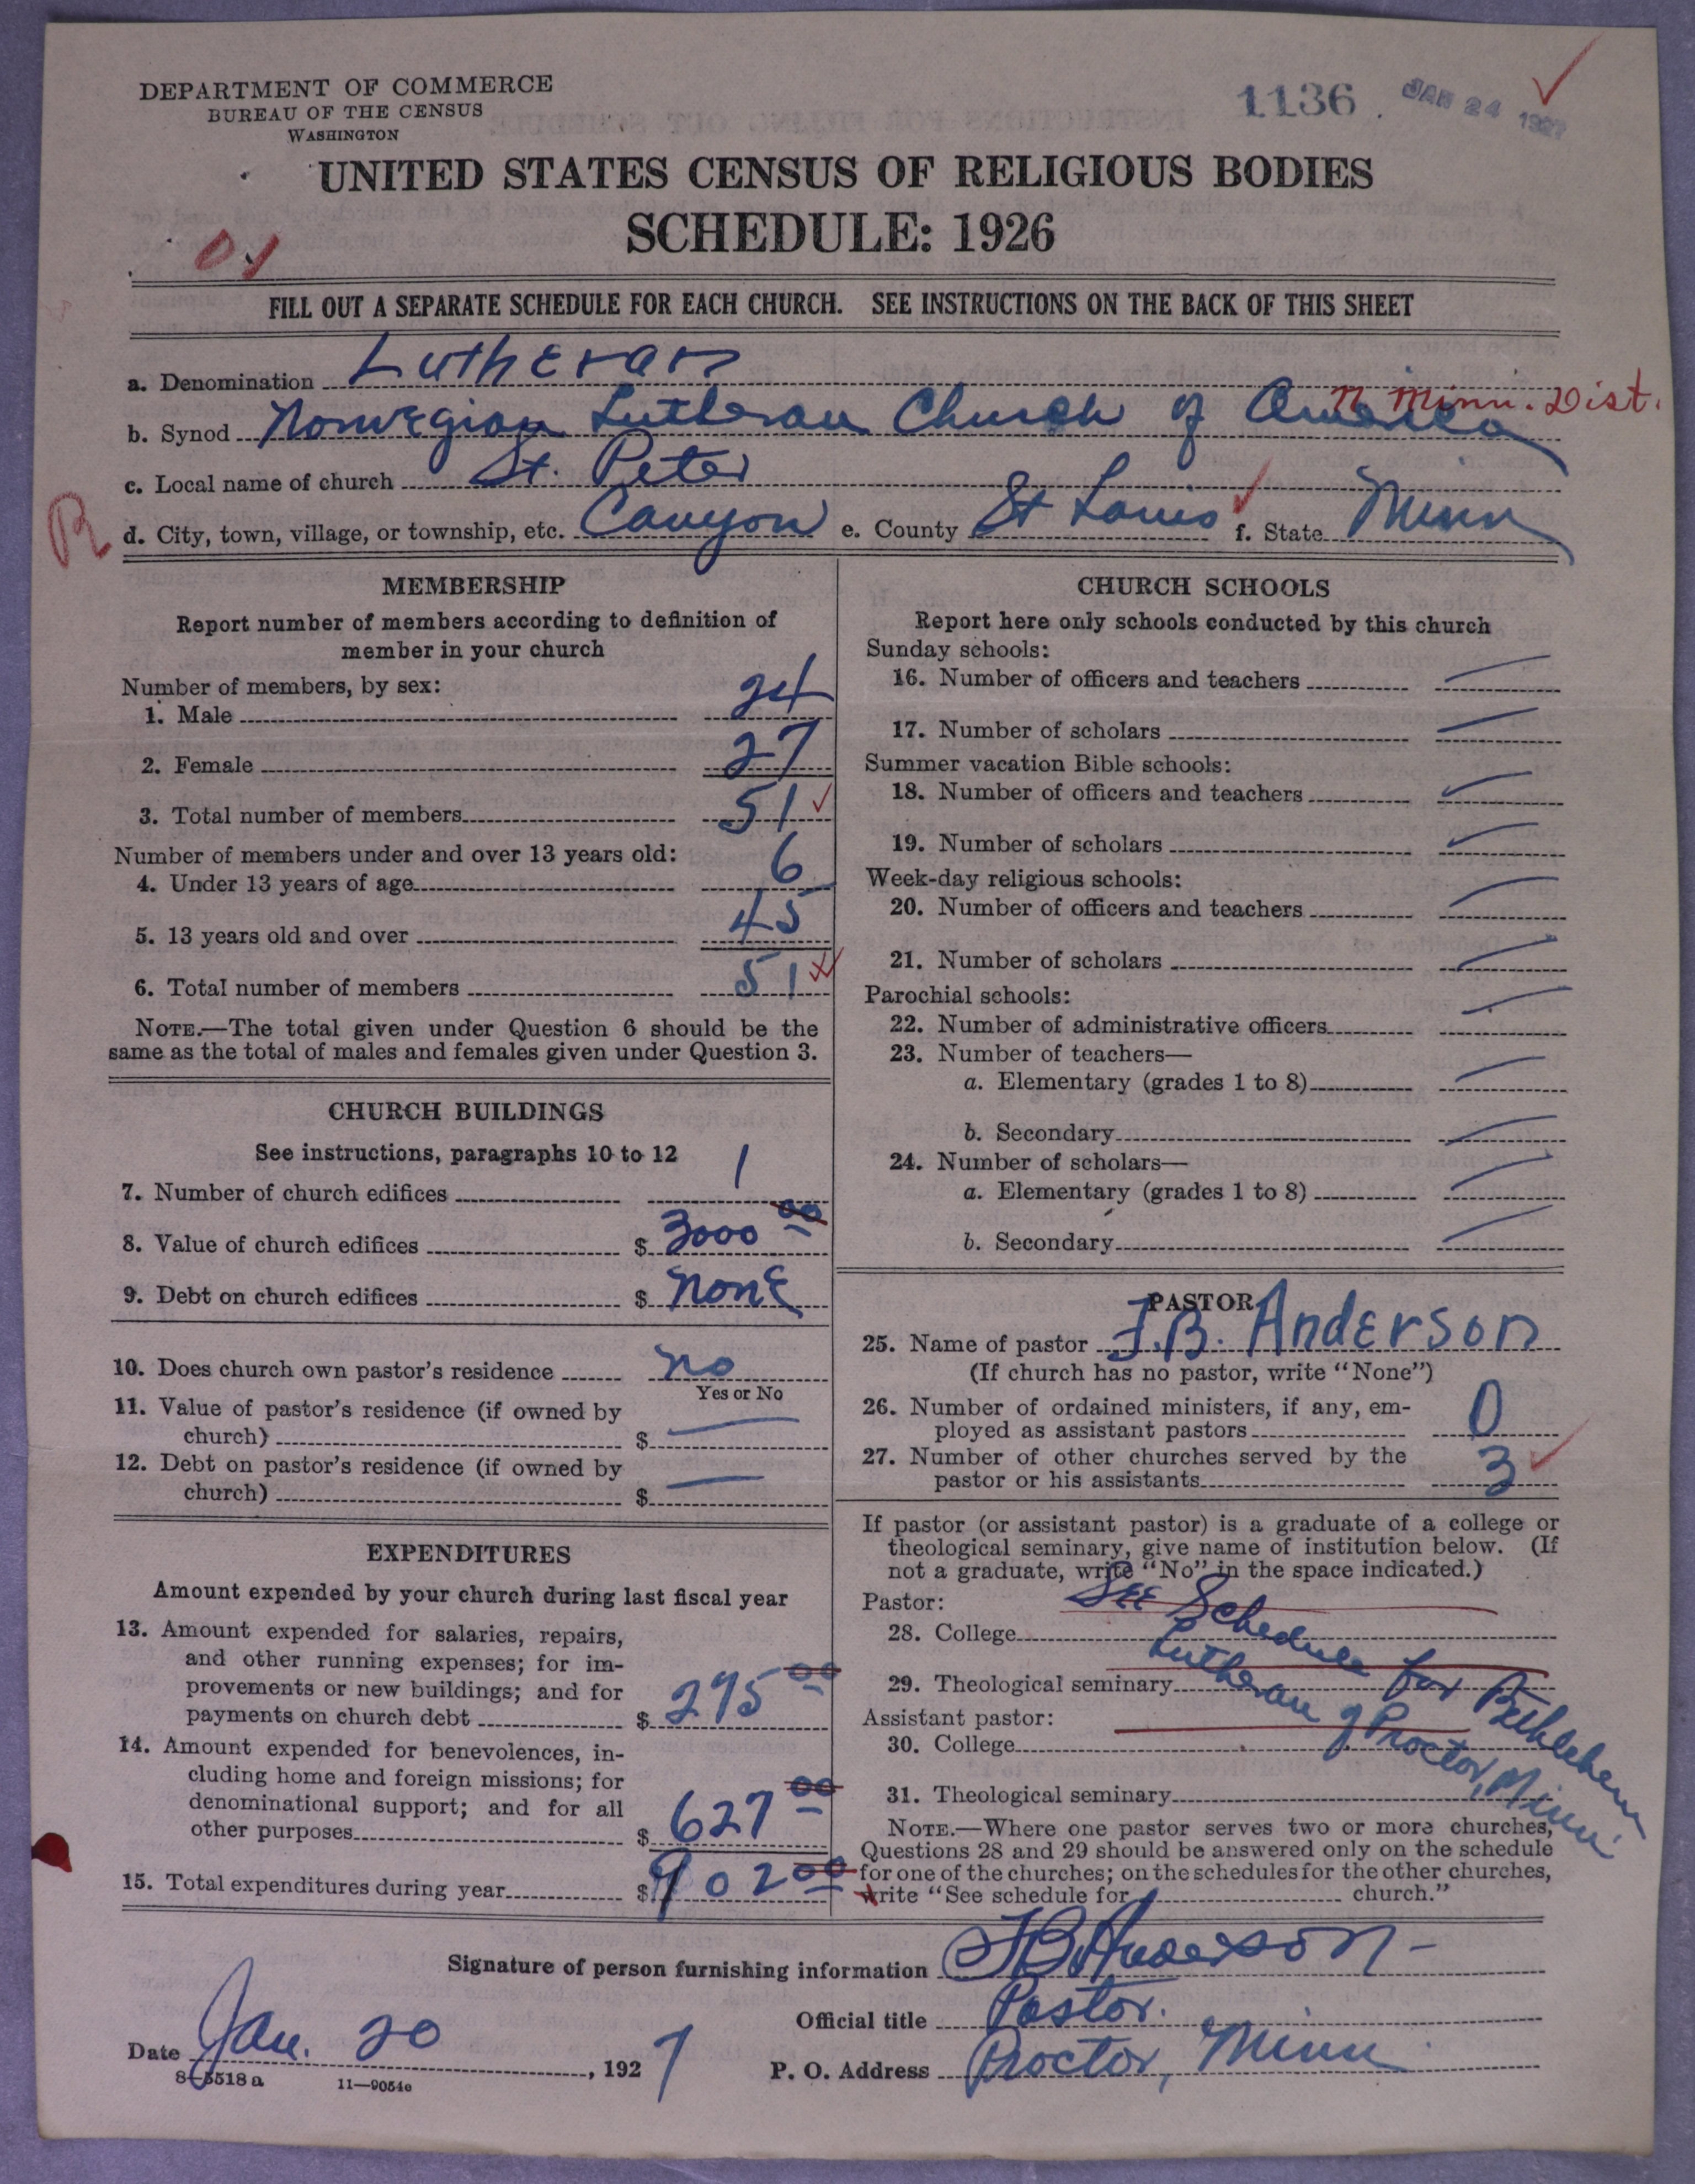 DEPARTMENT OF COMMERCE
BUREAU OF THE CENSUS
WASHINGTON
1136
JAN 24 1927
UNITED STATES CENSUS OF RELIGIOUS BODIES
SCHEDULE: 1926
FILL OUT A SEPARATE SCHEDULE FOR EACH CHURCH. SEE INSTRUCTIONS ON THE BACK OF THIS SHEET
a. Denomination Lutheran
N Minn. Dist.
b. Synod Norwegian Lutheran Church of America
c. Local name of church St. Peter
R
d. City, town, village, or township, etc. Canyon e. County St Louis f. State Minn
MEMBERSHIP
Report number of members according to definition of
member in your church
Number of members, by sex:
1. Male 24
2. Female 27
3. Total number of members 51
Number of members under and over 13 years old:
4. Under 13 years of age 6
5. 13 years old and over 45
6. Total number of members 51
NOTE.—The total given under Question 6 should be the
same as the total of males and females given under Question 3.
CHURCH BUILDINGS
See instructions, paragraphs 10 to 12
7. Number of church edifices 1
8. Value of church edifices $ 3000 00
9. Debt on church edifices $ none
10. Does church own pastor's residence no
Yes or No
11. Value of pastor's residence (if owned by
church) $ —
12. Debt on pastor's residence (if owned by
church) $ —
EXPENDITURES
Amount expended by your church during last fiscal year
13. Amount expended for salaries, repairs,
and other running expenses; for im-
provements or new buildings; and for
payments on church debt $ 275 00
14. Amount expended for benevolences, in-
cluding home and foreign missions; for
denominational support; and for all
other purposes $ 627 00
15. Total expenditures during year $ 902 00
CHURCH SCHOOLS
Report here only schools conducted by this church
Sunday schools:
16. Number of officers and teachers —
17. Number of scholars —
Summer vacation Bible schools:
18. Number of officers and teachers —
19. Number of scholars —
Week-day religious schools:
20. Number of officers and teachers —
21. Number of scholars —
Parochial schools:
22. Number of administrative officers —
23. Number of teachers—
a. Elementary (grades 1 to 8) —
b. Secondary —
24. Number of scholars—
a. Elementary (grades 1 to 8) —
b. Secondary —
PASTOR
25. Name of pastor J.B. Anderson
(If church has no pastor, write "None")
26. Number of ordained ministers, if any, em-
ployed as assistant pastors 0
27. Number of other churches served by the
pastor or his assistants 3
If pastor (or assistant pastor) is a graduate of a college or
theological seminary, give name of institution below. (If
not a graduate, write "No" in the space indicated.)
Pastor:
28. College
See Schedule for Bethlehem
Lutheran of Proctor, Minn.
29. Theological seminary
Assistant pastor:
30. College
31. Theological seminary
NOTE.—Where one pastor serves two or more churches,
Questions 28 and 29 should be answered only on the schedule
for one of the churches; on the schedules for the other churches,
write "See schedule for church."
Signature of person furnishing information J B Anderson
Official title Pastor.
Date Jan. 20, 1927
P. O. Address Proctor, Minn
8-5518 a 11—9054c